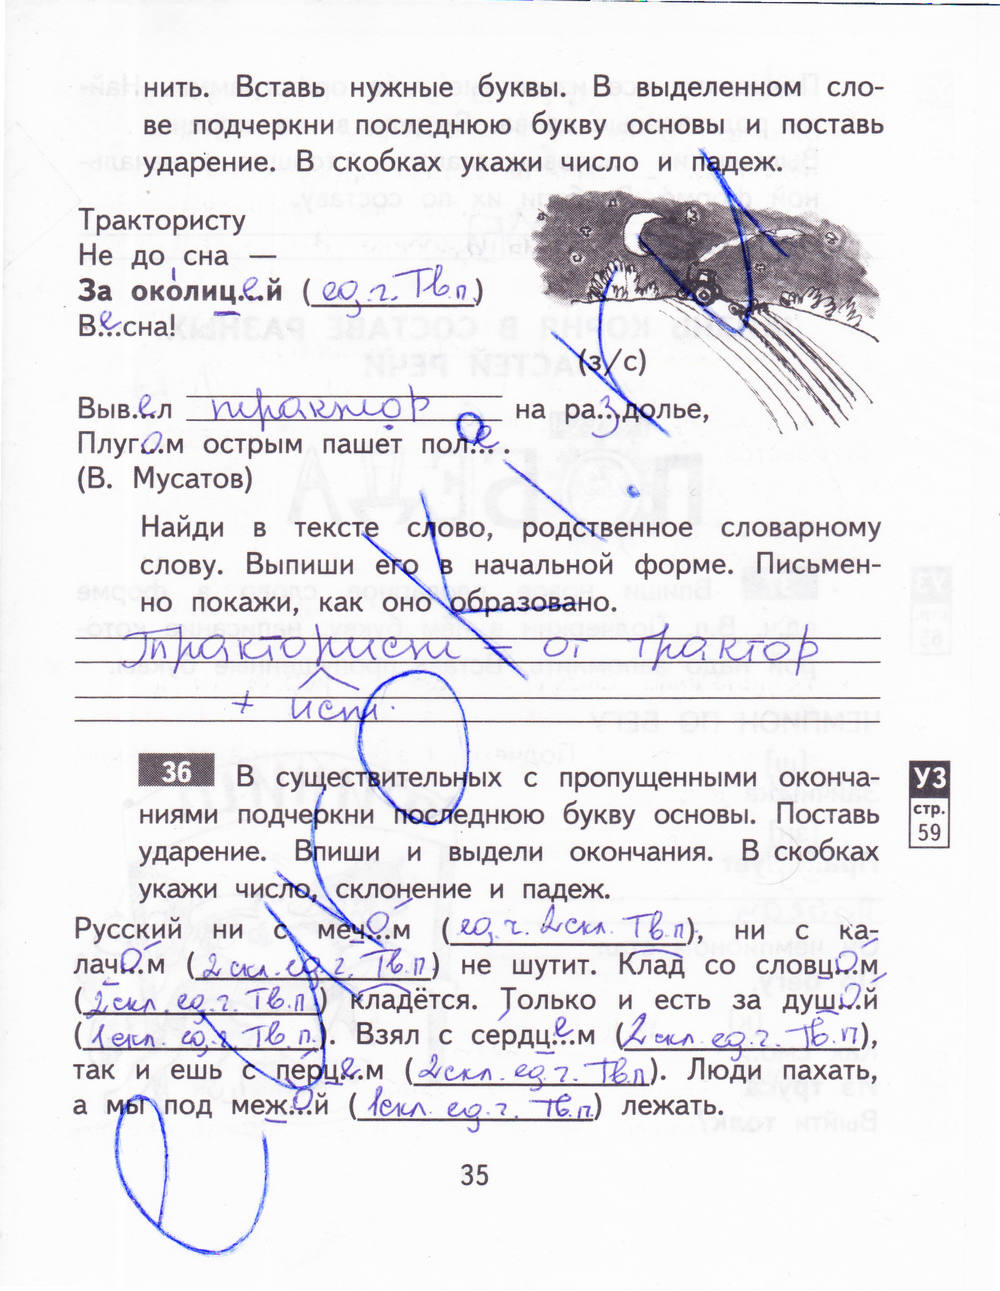 нить. Вставь нужные буквы. В выделенном сло-
ве подчеркни последнюю букву основы и поставь
ударение. В скобках укажи число и падеж.
Трактористу
Не до сна —
За околицей (ед.ч. Тв.п.)
Весна!
(з/с)
Вывел трактор на раздолье,
Плугом острым пашет поле.
(В. Мусатов)
Найди в тексте слово, родственное словарному
слову. Выпиши его в начальной форме. Письмен-
но покажи, как оно образовано.
Тракторист – от трактор
+ ист.
36 В существительных с пропущенными оконча-
ниями подчеркни последнюю букву основы. Поставь
ударение. Впиши и выдели окончания. В скобках
укажи число, склонение и падеж.
УЗ
стр.
59
Русский ни с мечом (ед.ч. 2скл. Тв.п), ни с ка-
лачом (2скл. ед.ч. Тв.п) не шутит. Клад со словцом
(2скл. ед.ч. Тв.п.) кладётся. Только и есть за душой
(1скл. ед.ч. Тв.п.). Взял с сердцем (2скл. ед.ч. Тв.п),
так и ешь с перцем (2скл. ед.ч. Тв.п). Люди пахать,
а мы под межой (1скл. ед.ч. Тв.п.) лежать.
35